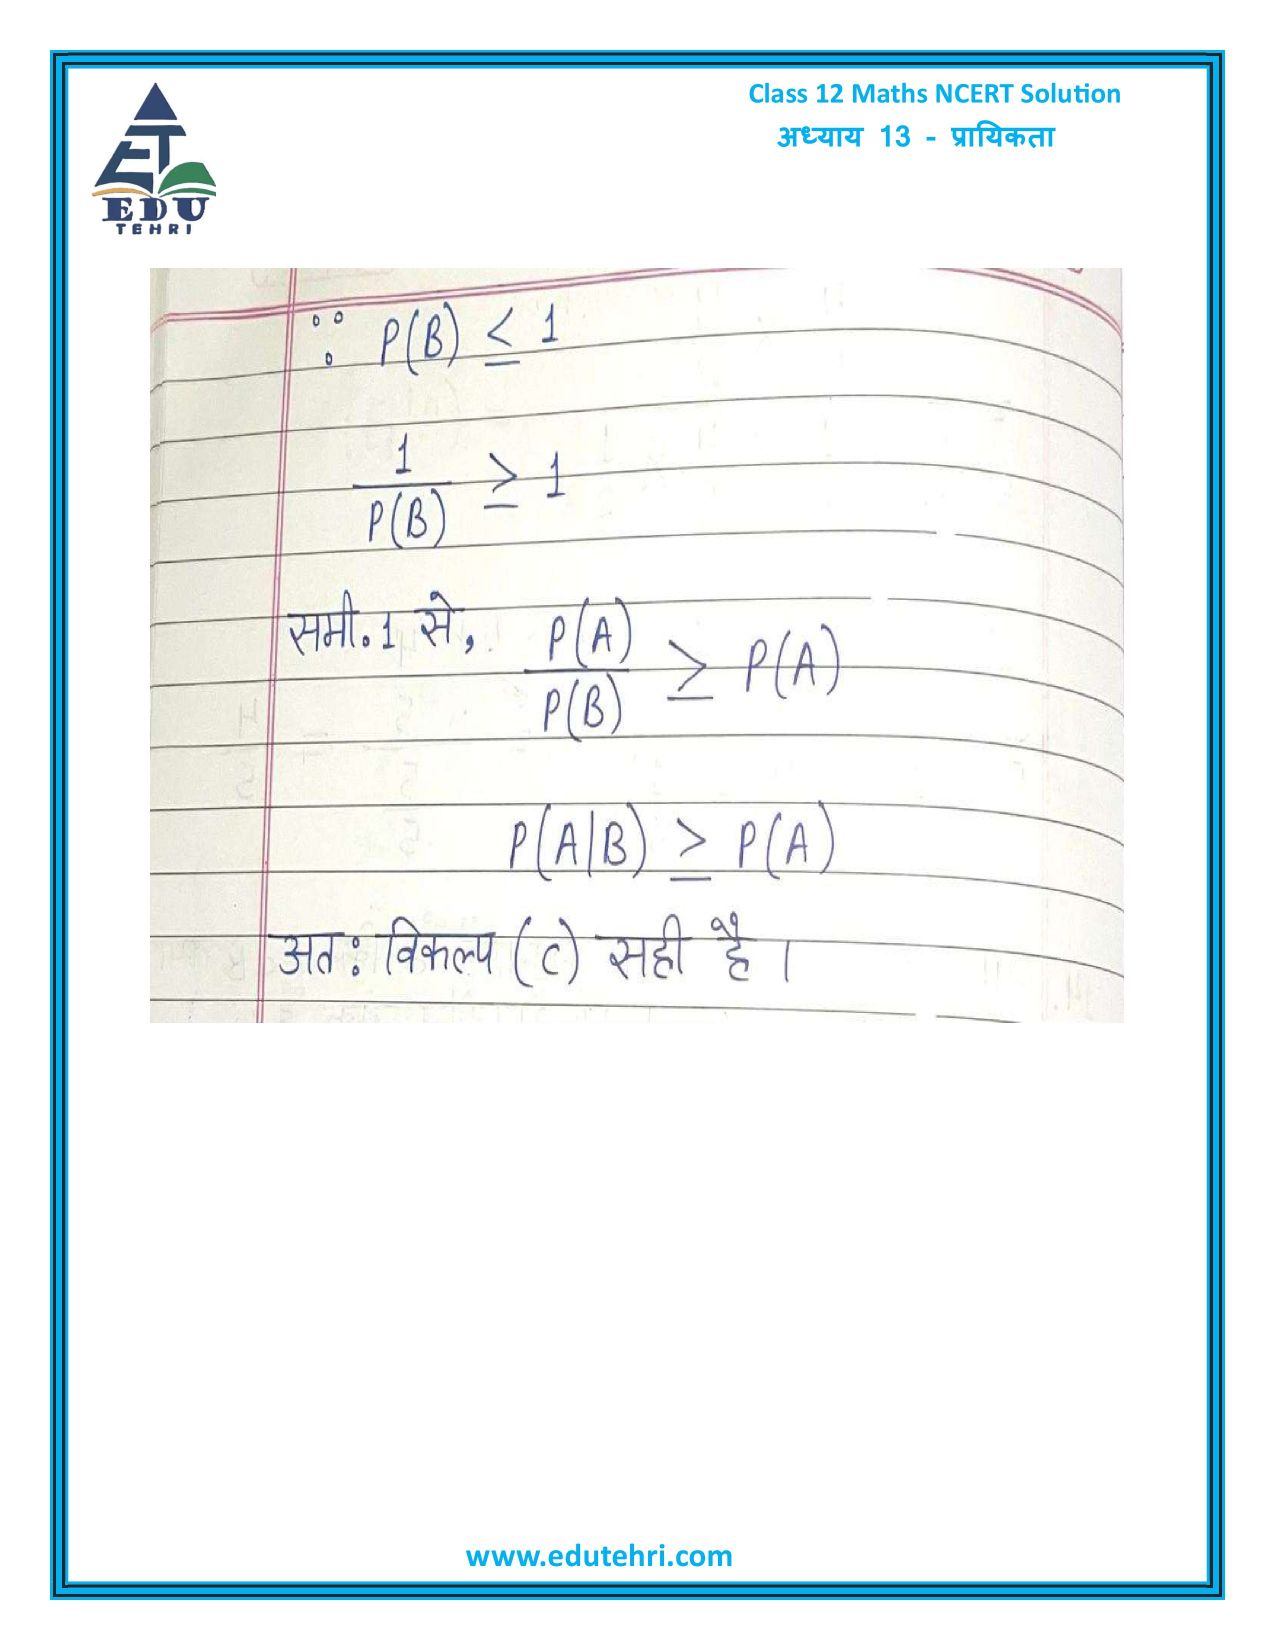 Class 12 Maths NCERT Solution
अध्याय 13 - प्रायिकता
EDU
TEHRI
∵ P(B) ≤ 1
1/P(B) ≥ 1
समी. 1 से, P(A)/P(B) ≥ P(A)
P(A|B) ≥ P(A)
अत: विकल्प (C) सही है ।
www.edutehri.com